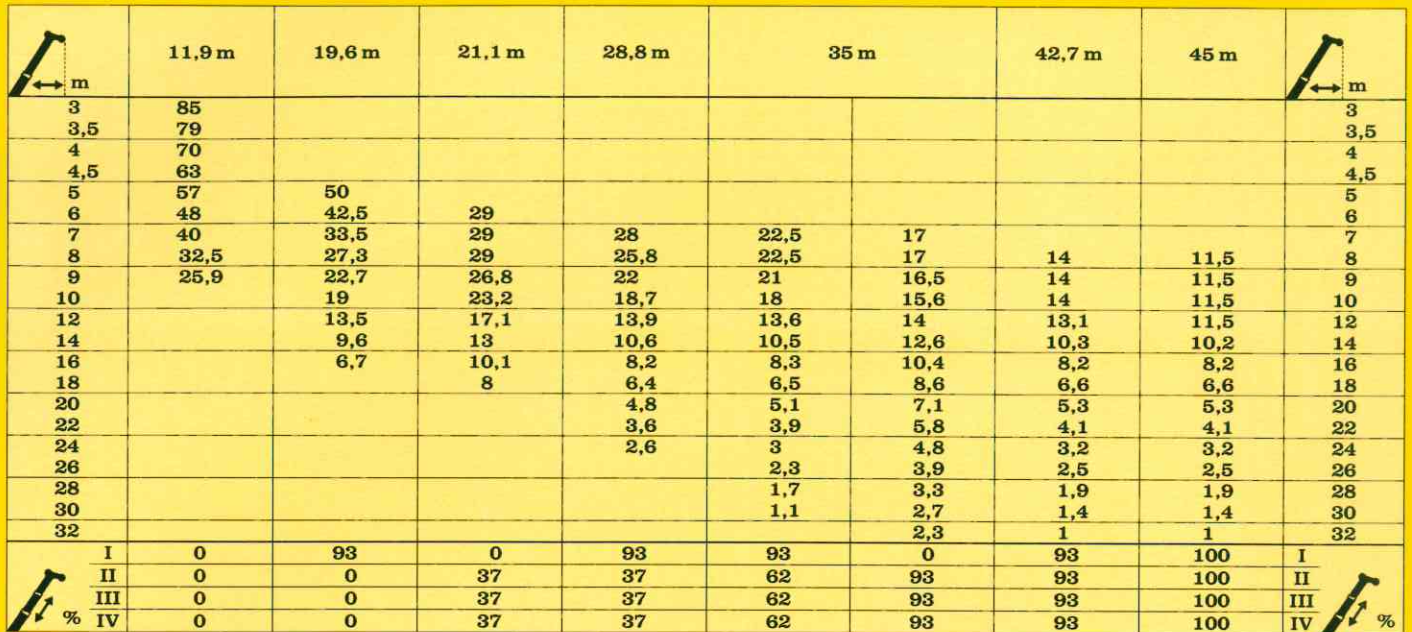 11,9 m 19,6 m 21,1 m 28,8 m 35 m 42,7 m 45 m
m m
3 85 3
3,5 79 3,5
4 70 4
4,5 63 4,5
5 57 50 5
6 48 42,5 29 6
7 40 33,5 29 28 22,5 17 7
8 32,5 27,3 29 25,8 22,5 17 14 11,5 8
9 25,9 22,7 26,8 22 21 16,5 14 11,5 9
10 19 23,2 18,7 18 15,6 14 11,5 10
12 13,5 17,1 13,9 13,6 14 13,1 11,5 12
14 9,6 13 10,6 10,5 12,6 10,3 10,2 14
16 6,7 10,1 8,2 8,3 10,4 8,2 8,2 16
18 8 6,4 6,5 8,6 6,6 6,6 18
20 4,8 5,1 7,1 5,3 5,3 20
22 3,6 3,9 5,8 4,1 4,1 22
24 2,6 3 4,8 3,2 3,2 24
26 2,3 3,9 2,5 2,5 26
28 1,7 3,3 1,9 1,9 28
30 1,1 2,7 1,4 1,4 30
32 2,3 1 1 32
I 0 93 0 93 93 0 93 100 I
II 0 0 37 37 62 93 93 100 II
III 0 0 37 37 62 93 93 100 III
% IV 0 0 37 37 62 93 93 100 IV %